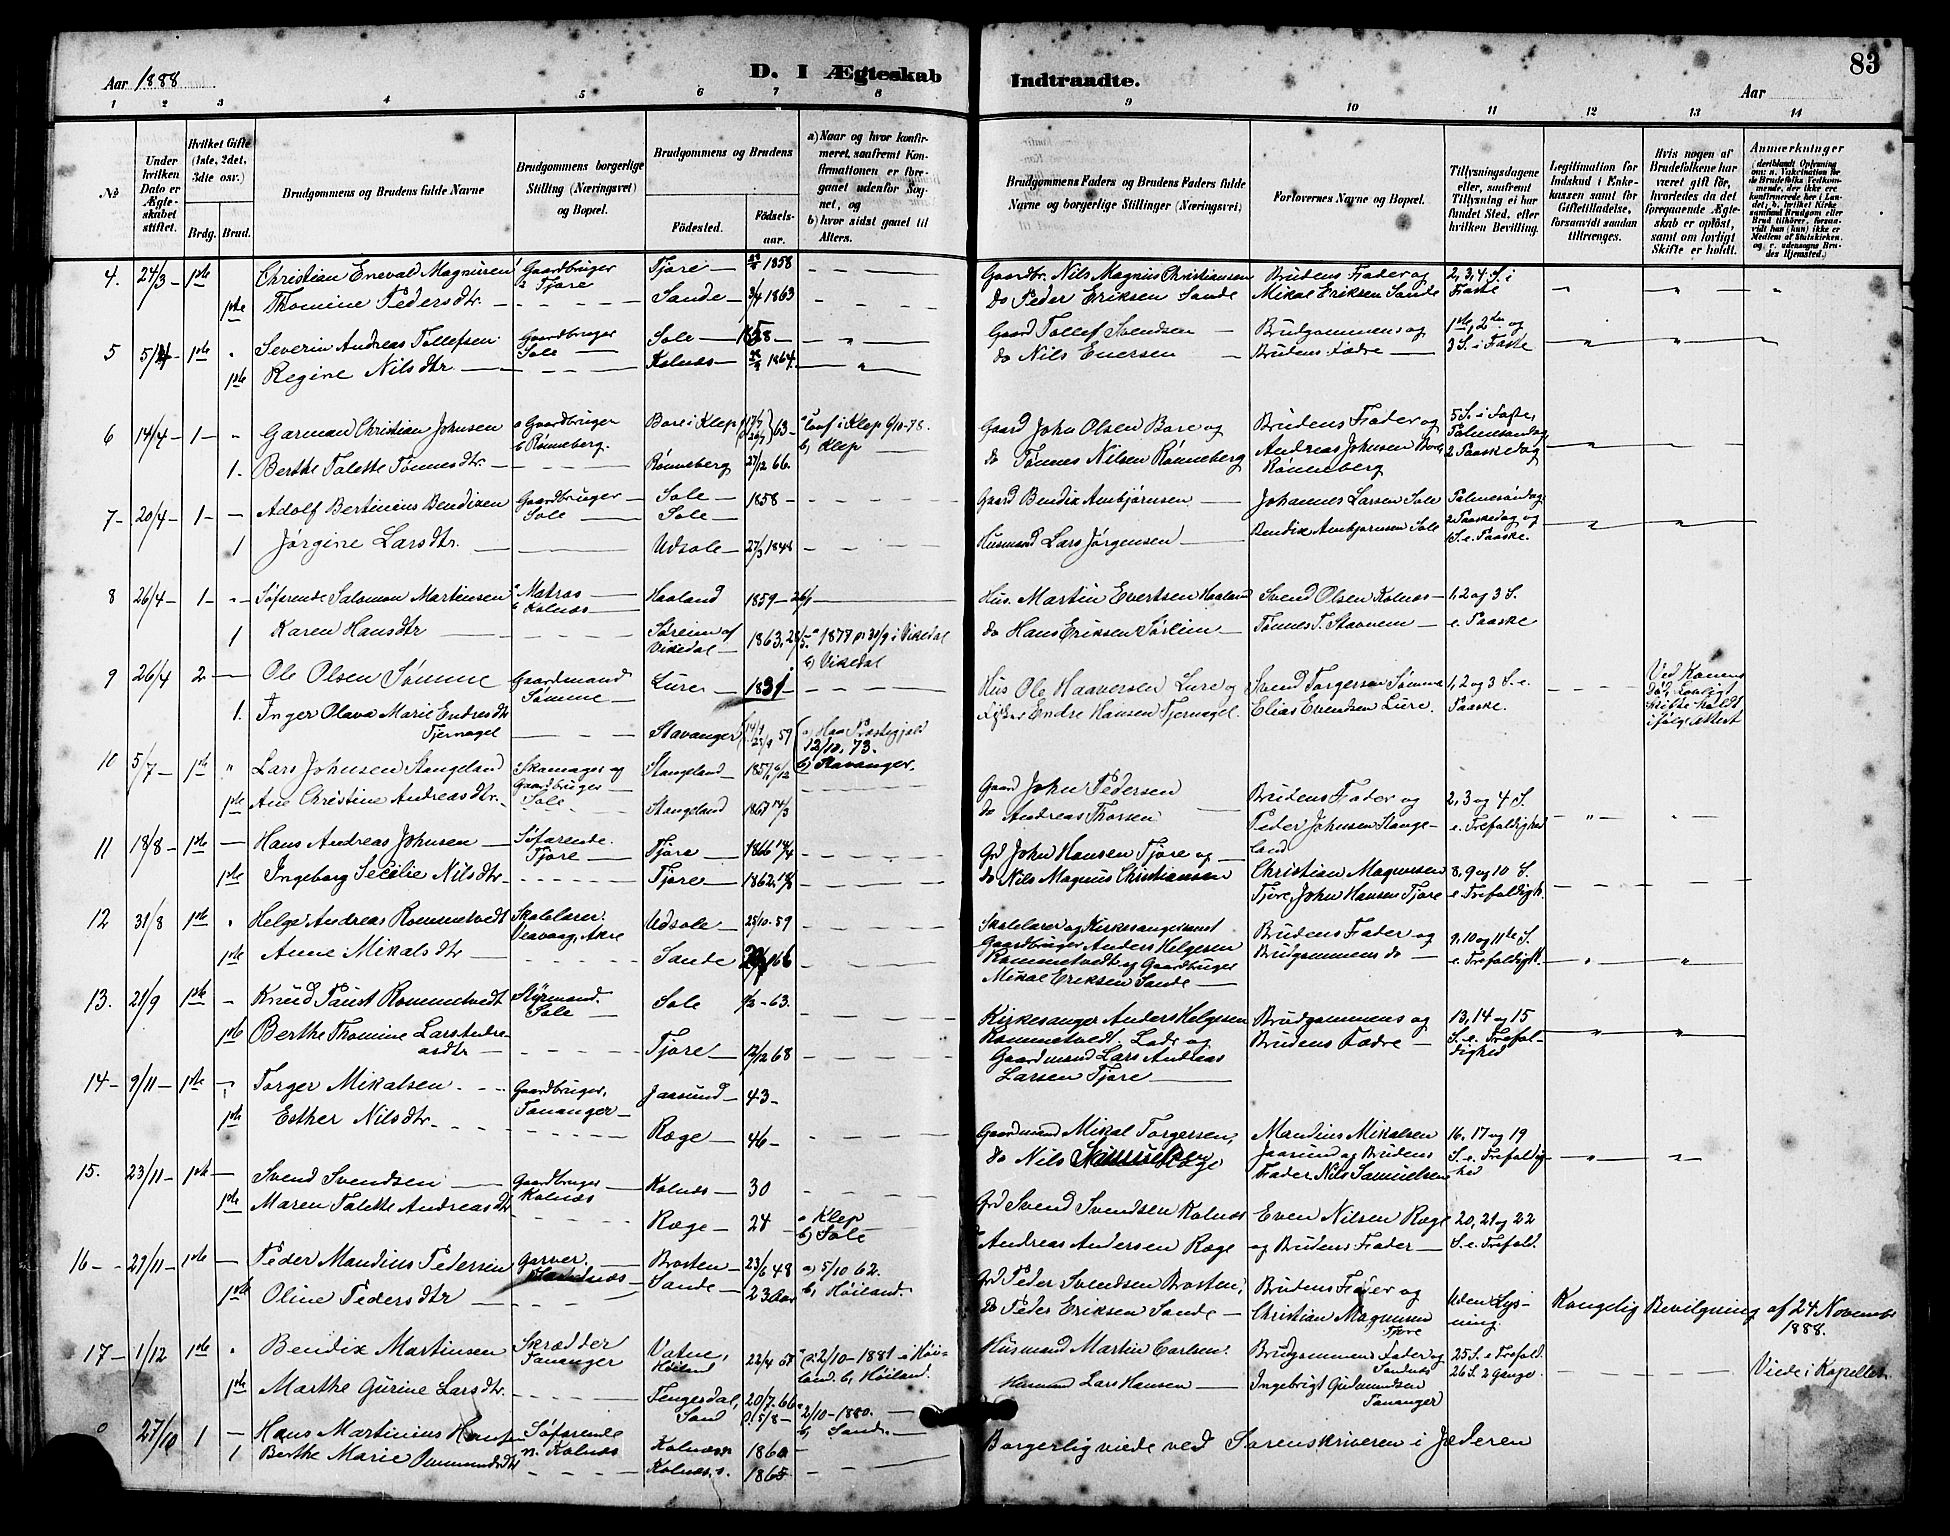 Aar 1888
D. I Ægteskab Indtraadte.
Aar
83
1 2 3 4 5 6 7 8 9 10 11 12 13 14
№
Under hvilken Dato er Ægteskabet stiftet.
Hvilket Gifte (1ste, 2det, 3die osv.)
Brdg. Brud.
Brudgommens og Brudens fulde Navne
Brudgommens borgerlige Stilling (Næringsvei) og Bopæl.
Brudgommens og Brudens
Födested. Födselsaar.
a) Naar og hvor konfirmeret, saafremt Konfirmationen er foregaaet udenfor Sognet, og
b) hvor sidst gaaet til Alters.
Brudgommens Faders og Brudens Faders fulde Navne og borgerlige Stillinger (Næringsvei)
Forlovernes Navne og Bopæl.
Tillysningsdagene eller, saafremt Tillysning ei har fundet Sted, efter hvilken Bevilling.
Legitimation for Indskud i Enkekassen samt for Giftetilladelse, forsaavidt saadan tiltrænges.
Hvis nogen af Brudefolkene har været gift för, hvorledes da det foregaaende Ægteskab er oplöst, samt om lovligt Skifte er holdt.
Anmærkninger
4. 24/3 1ste Christian Eneval Magnussen Gaardbruger Tjore Tjore 1858 Gaardbr. Nils Magnus Christiansen Brudens Fader og 2, 3, 4 S. i
1ste Thomine Pedersdtr. Sande 3/4 1863 do Peder Eriksen Sande Mikal Eriksen Sande Faste
5 5/4 1ste Severin Andreas Tollefsen Gaardbruger Sole Sole 1858 Gaard Tollef Svendsen Brudgommens og 1ste, 2den og
1ste Regine Nilsdtr. Kolnæs 1864 do Nils Enersen Brudens Fædre 3 S. i Faste
6 14/4 1 Garman Christian Johnsen a Gaardbruger b Rönneberg. Bore i Klep 63 Conf i Klep 6/10-78. b, Klep Gaard John Olsen Bore og Brudens Fader og 5 S. i Faste, Palmesøndag
1. Berthe Talette Tønnesdtr. Rønneberg 27/12 66. do Tønnes Nilsen Rønneberg Andreas Johnsen Bore 2 Paaskedag
7 20/4 1 Adolf Bertinius Bendixen Gaardbruger Sole Sole 1858 Gaard Bendix Ambjørnsen Johannes Larsen Sole Palmesöndag
1 Jørgine Larsdtr. Udsole 27/3 1848 Husmand Lars Jørgensen Bendix Ambjørnsen Sole 2 Paaskedag og 1 S. e. Paaske.
8 26/4 1 Søfarende Salomon Martinsen a Matros b Kolnæs Haaland 1859 Hus. Martin Evertsen Haaland Svend Olsen Kolnæs 1, 2 og 3 S.
1 Karen Hansdtr Søreim af Vikedal 1863 a 1877 i Vikedal b, Vikedal do Hans Eriksen Sørleim Tønnes T. Stavnem e. Paaske
9 26/4 2 Ole Olsen Sømme Gaardmand Sømme Lure 1831 Hus Ole Haaversen Lure og Svend Torgersen Sømme 1, 2 og 3 S. e. Ved Konens Död. Lovligt Skifte holdt ifølge Attest
1. Inger Olava Marie Endresdtr Tjernagel Stavanger 59 12/10. 73. b) Stavanger. Endre Hansen Tjernagel. Elias Evendsen Lure Paaske.
10 5/7 1ste Lars Johnsen Stangeland Skomager og Gaardbruger Sole Stangeland 1857 Gaard John Pedersen Brudens Fader og 2, 3 og 4 S.
1ste Ane Christine Andreasdtr. Stangeland 1867 14/3 do Andreas Thorsen Peder Johnsen Stangeland e. Trefoldighed
11 18/8 1ste Hans Andreas Johnsen Søfarende. Tjore Tjore 1866 Grd John Hansen Tjore og Christian Magnussen 8, 9 og 10 S.
1ste Ingeborg Secilie Nilsdtr. Tjore 1862 do Nils Magnus Christiansen Tjore, John Hansen Tjore e. Trefoldigh.
12 31/8 1ste Helge Andreas Rommetvedt Skolelærer. Udsole 25/10-59 Skolelærer og Kirkesanger samt Gaardbruger Anders Helgesen Rommetvedt og Gaardbruger Mikal Eriksen Sande Brudens Fader og 9, 10 og 11te S.
1ste Anne Mikalsdtr Sande 66 Brudgommens do e. Trefoldigh.
13. 21/9 1ste Knud Faust Rommetvedt Styrmand. Sole Sole 63. Kirkesanger Anders Helgesen Rommetvedt, og Gaardmand Lars Andreas Larsen Tjore Brudgommens og Brudens Fædre 13, 14 og 15 S. e. Trefoldighed
1ste Berthe Thomine Lars Andreasdtr Tjore 12/12 68
14 9/11 1ste Torger Mikalsen Gaardbruger, Tananger Jaasund 43 Gaardmand Mikal Torgersen, Mandius Mikalsen 16, 17 og 19
1ste Esther Nilsdtr. Ræge 46 do Nils Ræge Jaasund og Brudens Fader Nils Samuelsen S. e. Trefoldighed
15. 23/11 1ste Svend Svendsen Gaardbruger Kolnæs Kolnæs 30 Grd Svend Svendsen Kolnæs Even Nilsen Ræge 20, 21 og 22
1ste Maren Talette Andreasdtr Ræge 24 a Klep b, Sole Andreas Andersen Ræge og Brudens Fader S. e. Trefold.
16 27/11 1ste Peder Mandius Pedersen Garver. Brosten 23/6 48 a) 5/10 62. b, Höiland. Grd Peder Svendsen Brosten, Brudens Fader og Uden Lysning. Kongelig Bevilgning af 24 November 1888.
1ste Oline Pedersdtr Sande 23 Aar do Peder Eriksen Sande Christian Magnussen Tjore
17 1/12 1ste Bendix Martinsen Skrædder Tananger Vatne, Höiland 22/4 57 (a. 2/10-1881 i Höiland. b, Höiland. Husmand Martin Carlsen. Brudgommens Fader og Sandnes 25 S. e Trefold. Viede i Kapellet
1ste Marthe Gurine Larsdtr. Tengesdal, Sand 20/7. 66 D. 15/8 a 2/10-1880. b, Sand. Husmand Lars Hansen Ingebrigt Gudmundsen Tananger 26 S. 2 Gange
0 27/10 1 Hans Martinius Hansen Søfarende n. Kolnæs Kolnæs 1860 Borgerlig viede ved Sorenskriveren i Jæderen
1 Berthe Marie Kolnæs 1865